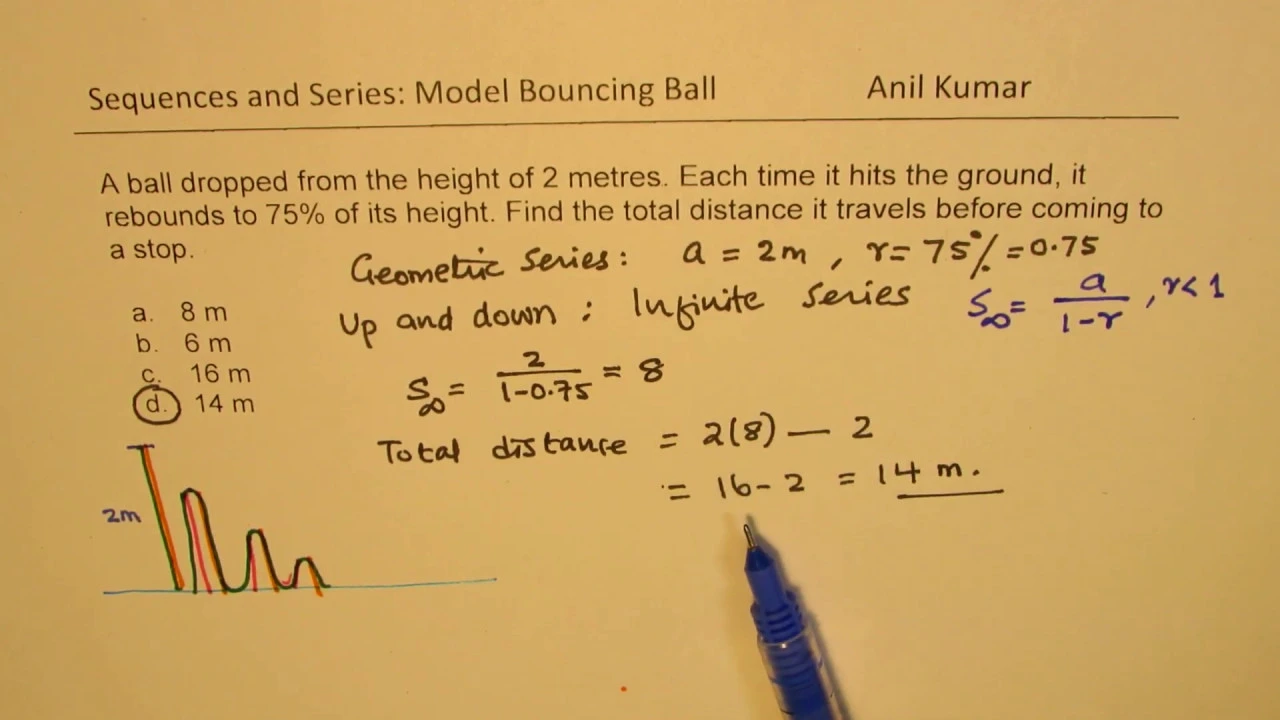 Sequences and Series: Model Bouncing Ball Anil Kumar
A ball dropped from the height of 2 metres. Each time it hits the ground, it
rebounds to 75% of its height. Find the total distance it travels before coming to
a stop.
Geometric Series: a = 2m, r = 75% = 0.75
Up and down: Infinite series S∞ = a/(1-r), r<1
a. 8 m
b. 6 m
c. 16 m
d. 14 m
S∞ = 2/(1-0.75) = 8
Total distance = 2(8) — 2
= 16 - 2 = 14 m.
2m